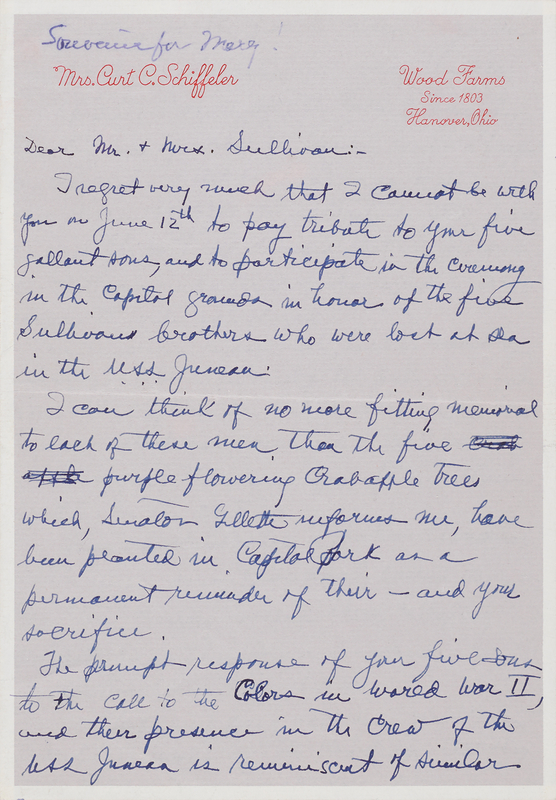 Souvenir for Mary!
Mrs. Curt C. Schiffeler
Wood Farms
Since 1803
Hanover, Ohio
Dear Mr. + Mrs. Sullivan:-
I regret very much that I cannot be with
you on June 12th to pay tribute to your five
gallant sons, and to participate in the ceremony
in the Capitol grounds in honor of the five
Sullivans brothers who were lost at sea
in the U.S.S. Juneau.
I can think of no more fitting memorial
to each of these men than the five crab
apple purple flowering Crabapple trees
which, Senator Gillette informs me, have
been planted in Capitol Park as a
permanent reminder of their - and your
sacrifice.
The prompt response of your five sons
to the call to the Colors in World War II,
and their presence in the crew of the
USS Juneau is reminiscent of similar